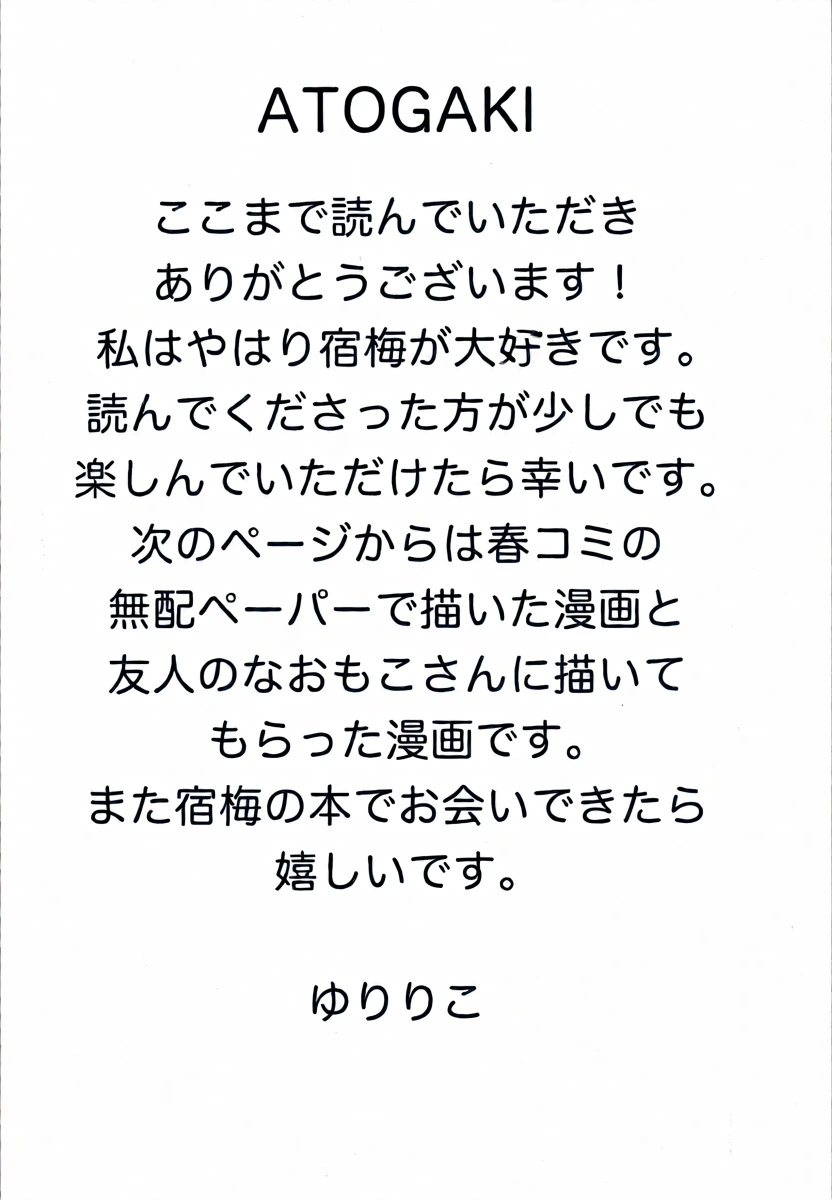 ATOGAKI
ここまで読んでいただき
ありがとうございます！
私はやはり宿梅が大好きです。
読んでくださった方が少しでも
楽しんでいただけたら幸いです。
次のページからは春コミの
無配ペーパーで描いた漫画と
友人のなおもこさんに描いて
もらった漫画です。
また宿梅の本でお会いできたら
嬉しいです。
ゆりりこ